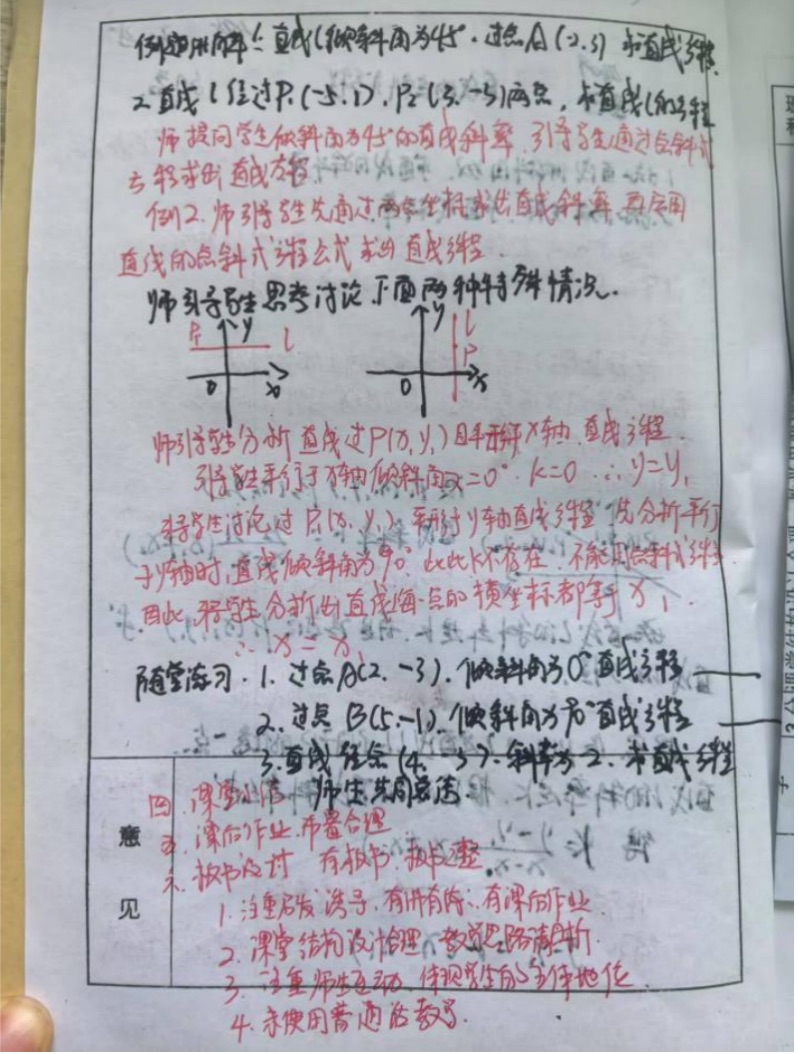 例题讲解1.直线l倾斜角为45°.过点A(2.3) 求直线方程.
2.直线l经过P₁(-5.1), P₂(3.-5)两点, 求直线l的方程
师提问学生倾斜角为45°的直线斜率, 引导学生通过点斜式
方程求出直线方程
例2.师引导学生先通过两点坐标求出直线斜率 再运用
直线的点斜式方程公式求出直线方程.
师引导学生思考讨论下面两种特殊情况.
P₁ y l
0 x
y l
P
0 x
师引导学生分析直线过P(x,y,)且平行x轴.直线方程.
引导学生平行于x轴倾斜角α=0°.k=0 ∴y=y₁
引导学生讨论过P₁(x,y,)平行于y轴直线方程 先分析平行
于y轴时,直线倾斜角为90° 此k不存在.不能用点斜式方程.
因此 学生分析出直线每一点的横坐标都等于x₁.
∴x=x₁
随堂练习.1.过点A(2.-3).倾斜角为0°直线方程
2.过点B(5,-1).倾斜角为90°直线方程
3.直线经点(4.-3).斜率为-2.求直线方程
四.课堂小结 师生共同总结
五.课后作业.布置合理
六.板书设计 有板书.板书工整
意见
1.注重启发诱导.有讲有练.有课后作业.
2.课堂结构设计合理 教学思路清晰.
3.注重师生互动.体现学生的主体地位.
4.未使用普通话教学.